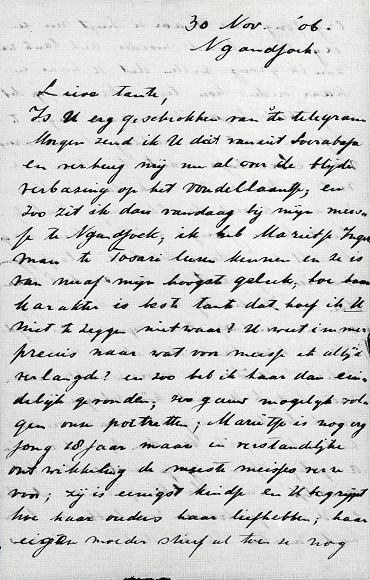 30 Nov. '06.
Ngandjoek.
Lieve tante,
Is U erg geschrokken van 't telegram
Morgen zend ik U dit vanuit Soerabaja
en verheug mij nu al over de blijde
verbazing op het Vondellaantje; en
zoo zit ik dan vandaag bij mijn meis-
je te Ngandjoek; ik heb Marietje Inger
man te Tosari leeren kennen en ze is
van nu af mijn hoogste geluk; hoe haar
karakter is beste tante dat hoef ik U
niet te zeggen, niet waar? U weet immers
precies naar wat voor meisje ik altijd
verlangde? en zoo heb ik haar dan ein-
delijk gevonden; zoo gauw mogelijk vol-
gen onze portretten; Marietje is nog erg
jong 18 jaar maar in verstandelijke
ontwikkeling de meeste meisjes verre
voor; zij is eenigst kindje en U begrijpt
hoe haar ouders haar liefhebben; haar
eigen moeder stierf al toen ze nog